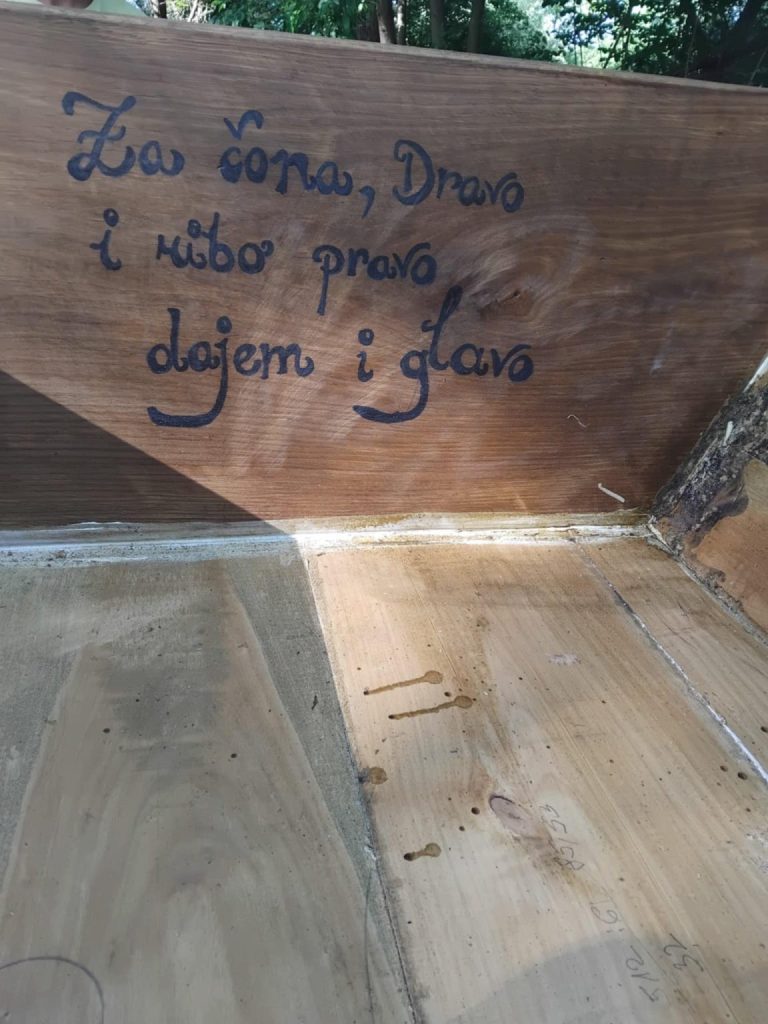 Za čona, Dravo
i ribo pravo
dajem i glavo